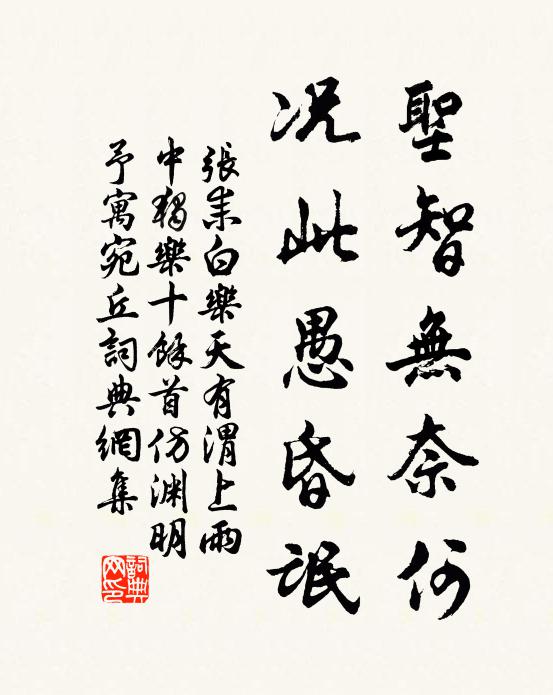 聖智無奈何
況此愚昏氓
張耒白樂天有渭上雨
中獨樂十餘首仿淵明
予寓宛丘詞典網集
詞典网印